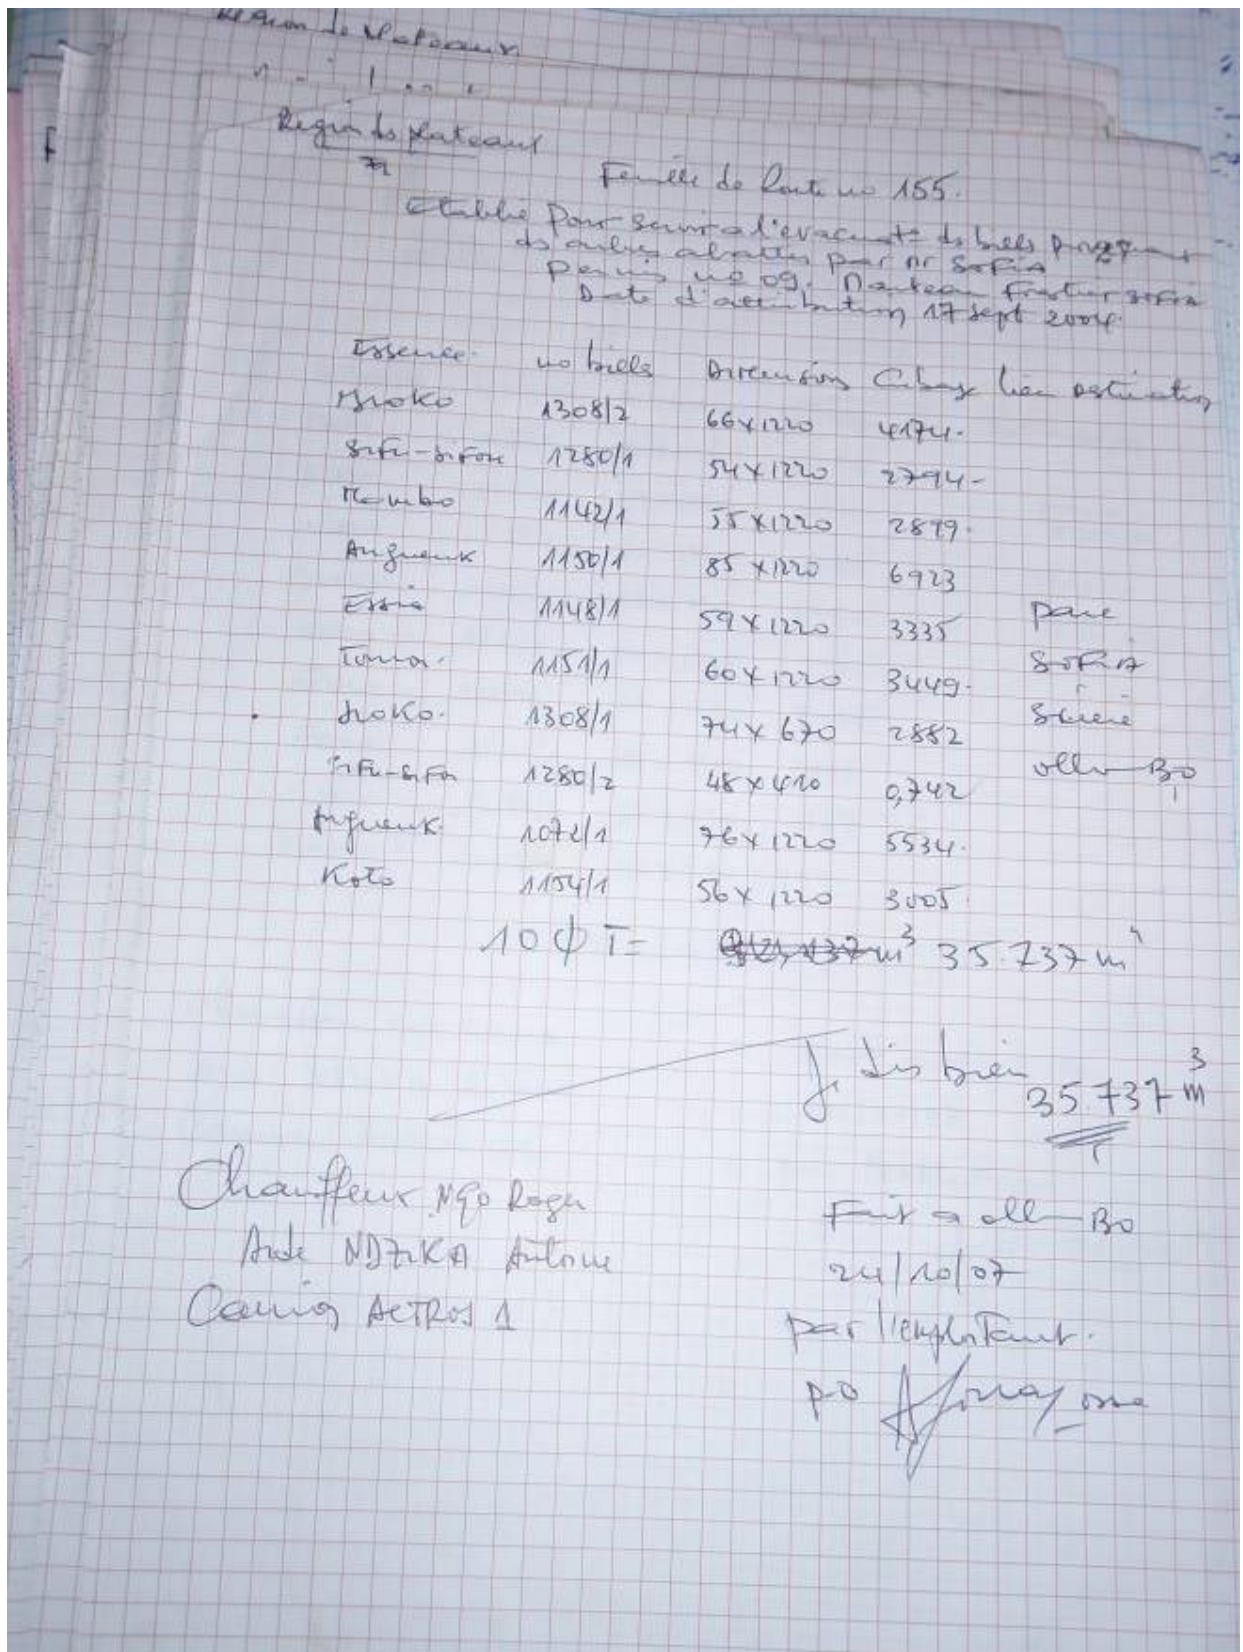 Region de Plateaux
Region ds plateaux
Feuille de Route no 155.
Etablie pour servir a l'evacuat° ds billes provenant
ds arbres abattus par Mr SOFIA
Permis no 09. Forestier SOFIA
Date d'attribution 17 sept 2004.
Essence no billes Dimensions Cubage lieu Destination
Iroko 1308/2 66x1220 4174-
Sifu-Sifou 1280/1 54x1220 2794-
Mambo 1142/1 55x1220 2899.
Angueuk 1150/1 85x1220 6923
Essia 1148/1 59x1220 3335 parc
1151/1 60x1220 3449. SOFIA
Iroko. 1308/1 74x670 2882 Scierie
Sifu-Sifou 1280/2 48x410 0,742 ollo-Bo
Angueuk. 1072/1 76x1220 5534.
Koto 1154/1 56x1220 3005.
10 ϕ T= m³ 35.737 m
Je dis bien 35.737 m³
Chauffeur NGO Roger
Aide NDZIKA Antoine
Camion ACTROS 1
Fait a ollo-Bo
24/10/07
par l'exploitant.
po